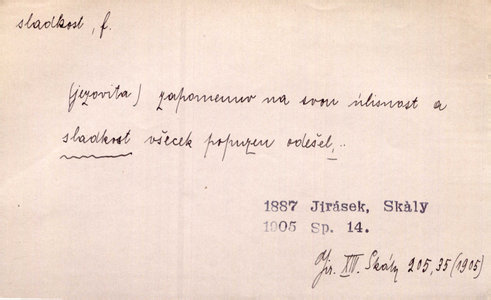 sladkost, f.
(jezovita) zapomenuv na svou úlisnost a
sladkost všecek popuzen odešel,..
1887 Jirásek, Skàly
1905 Sp. 14.
Jir. XIII. Skály 205,35 (1905)